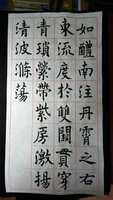 如醴南注丹霄之右
東流度於雙闕貫穿
青瑣縈帶紫房激揚
清波滌蕩